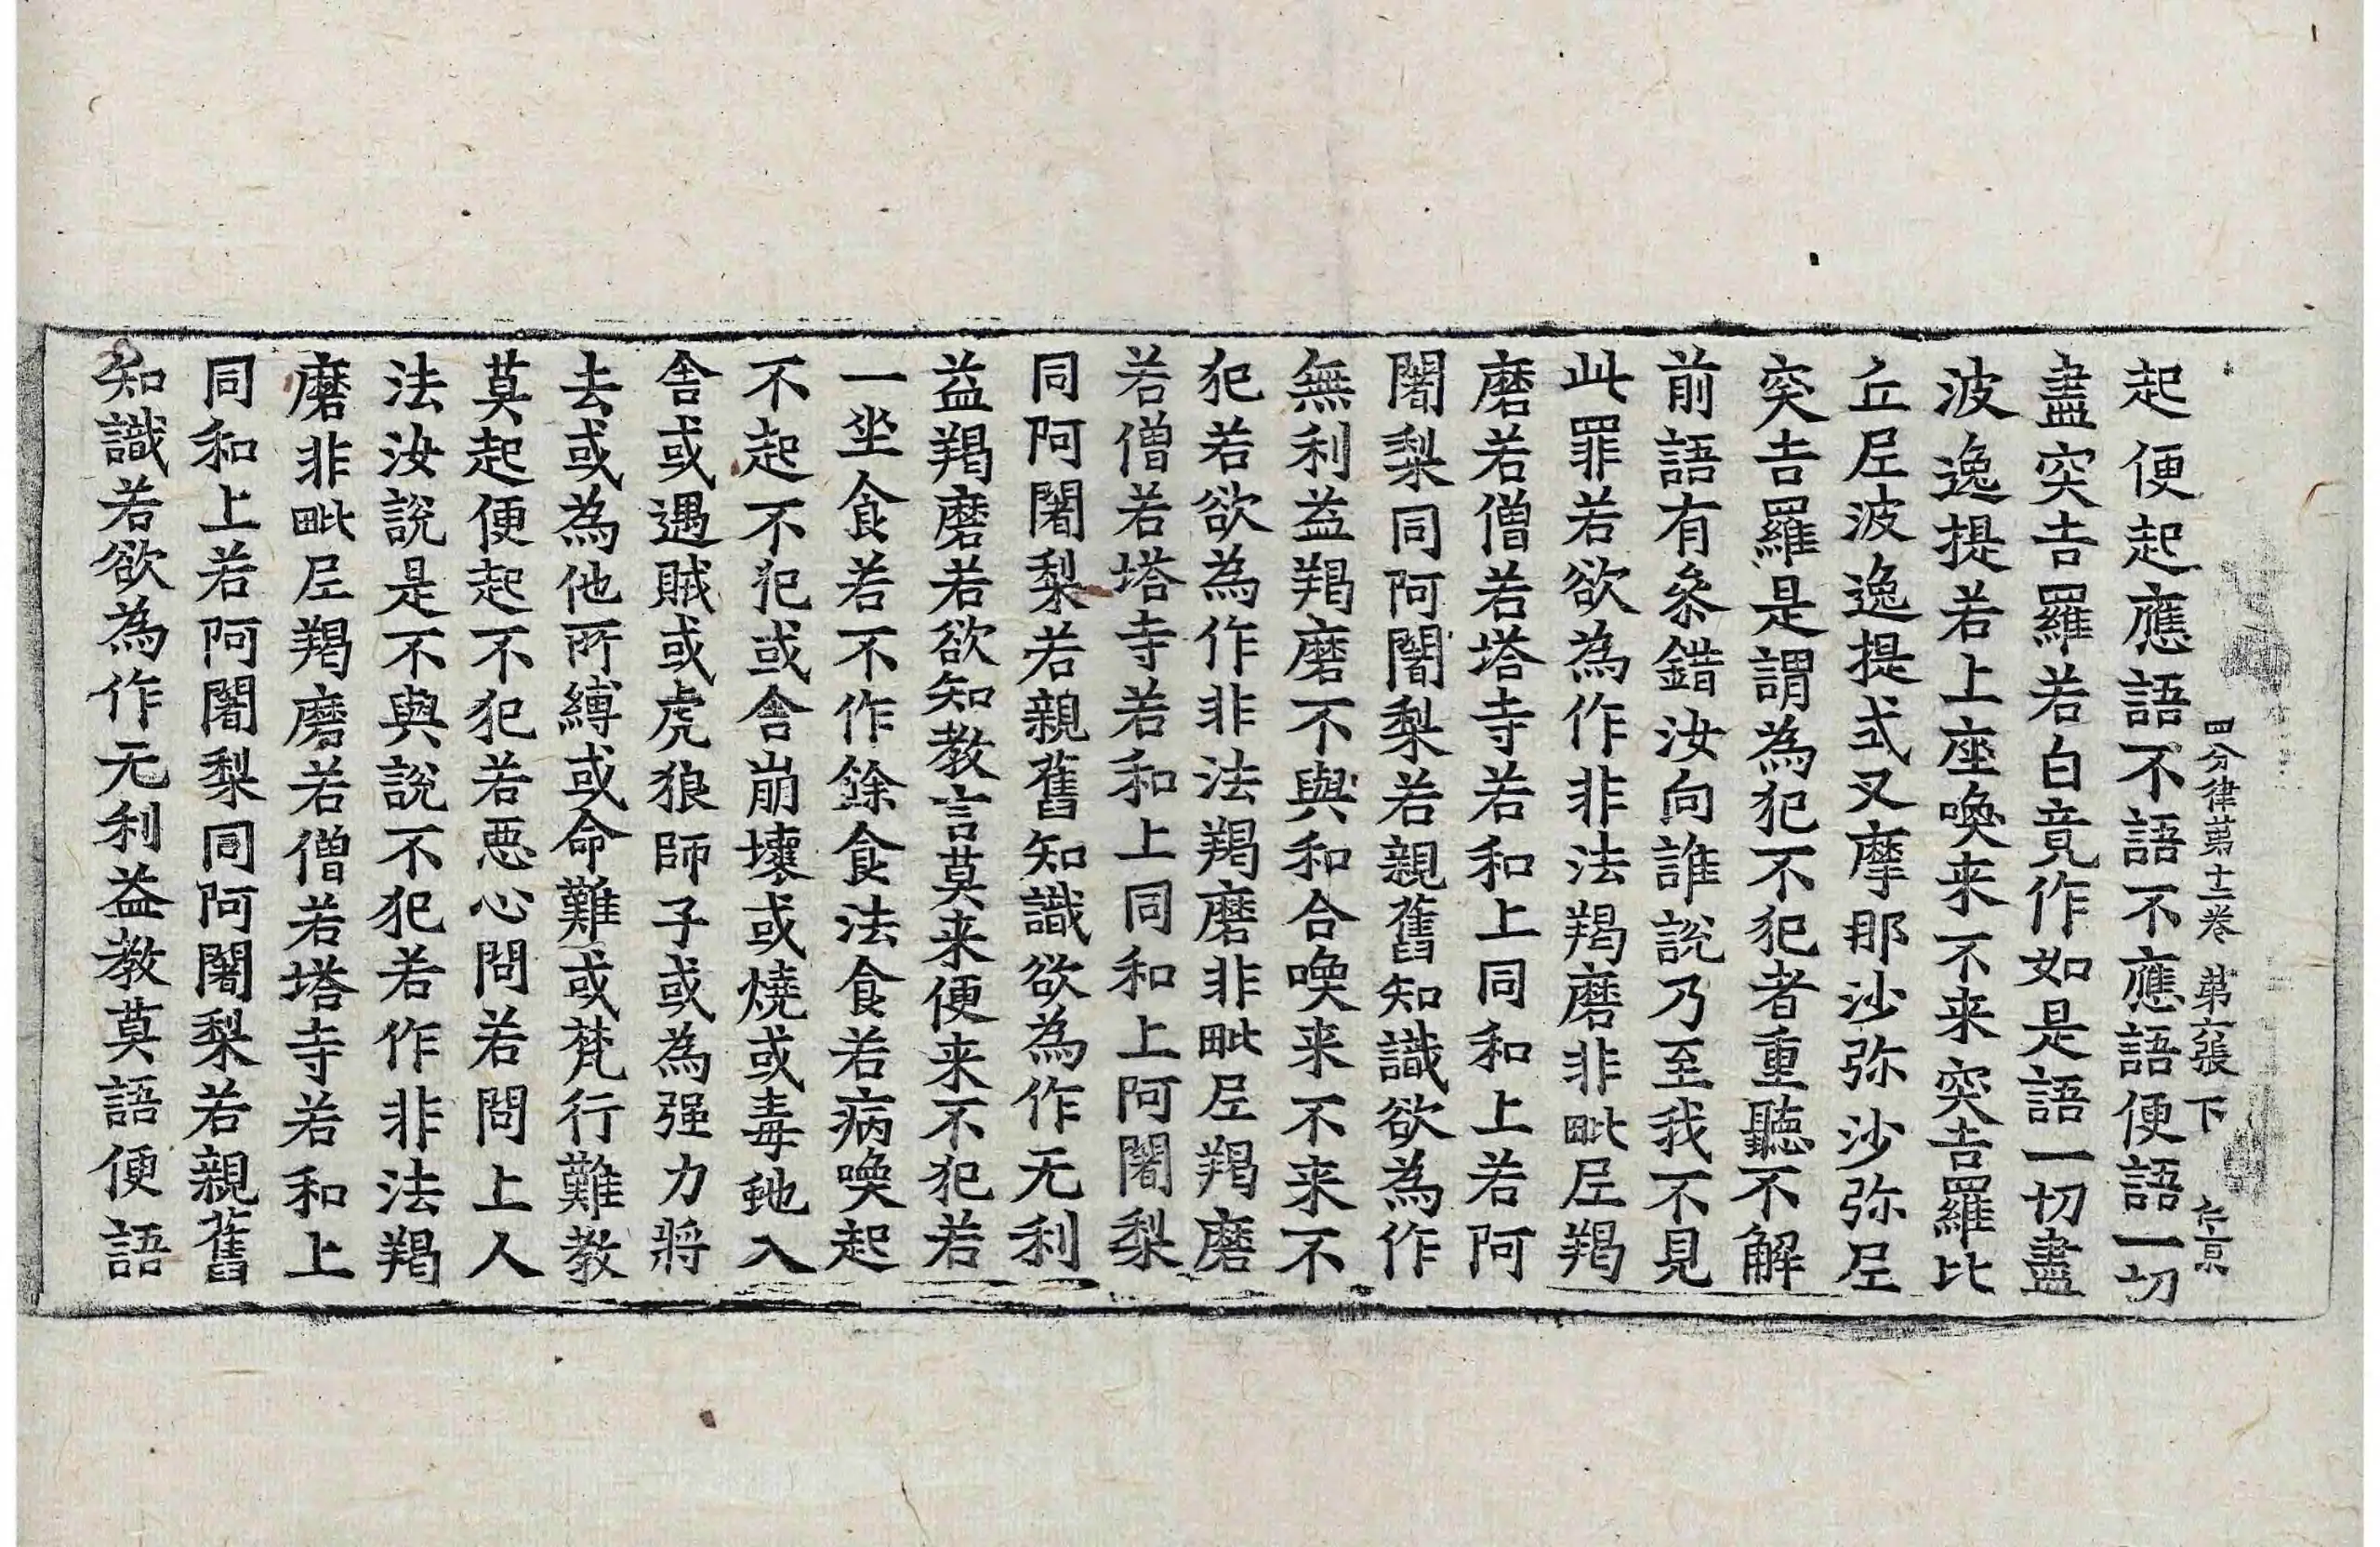 四分律第十二卷 第六張 下
起便起應語不語不應語便語一切
盡突吉羅若白竟作如是語一切盡
波逸提若上座喚来不来突吉羅比
丘尼波逸提式叉摩那沙弥沙弥尼
突吉羅是謂為犯不犯者重聽不解
前語有叅錯汝向誰說乃至我不見
此罪若欲為作非法羯磨非毗尼羯
磨若僧若塔寺若和上同和上若阿
闍梨同阿闍梨若親舊知識欲為作
無利益羯磨不與和合喚来不来不
犯若欲為作非法羯磨非毗尼羯磨
若僧若塔寺若和上同和上阿闍梨
同阿闍梨若親舊知識欲為作无利
益羯磨若欲知教言莫来便来不犯若
一坐食若不作餘食法食若病喚起
不起不犯或舎崩壞或燒或毒虵入
舎或遇賊或虎狼師子或為强力將
去或為他所縛或命難或梵行難教
莫起便起不犯若惡心問若問上人
法汝說是不與說不犯若作非法羯
磨非毗尼羯磨若僧若塔寺若和上
同和上若阿闍梨同阿闍梨若親舊
知識若欲為作无利益教莫語便語